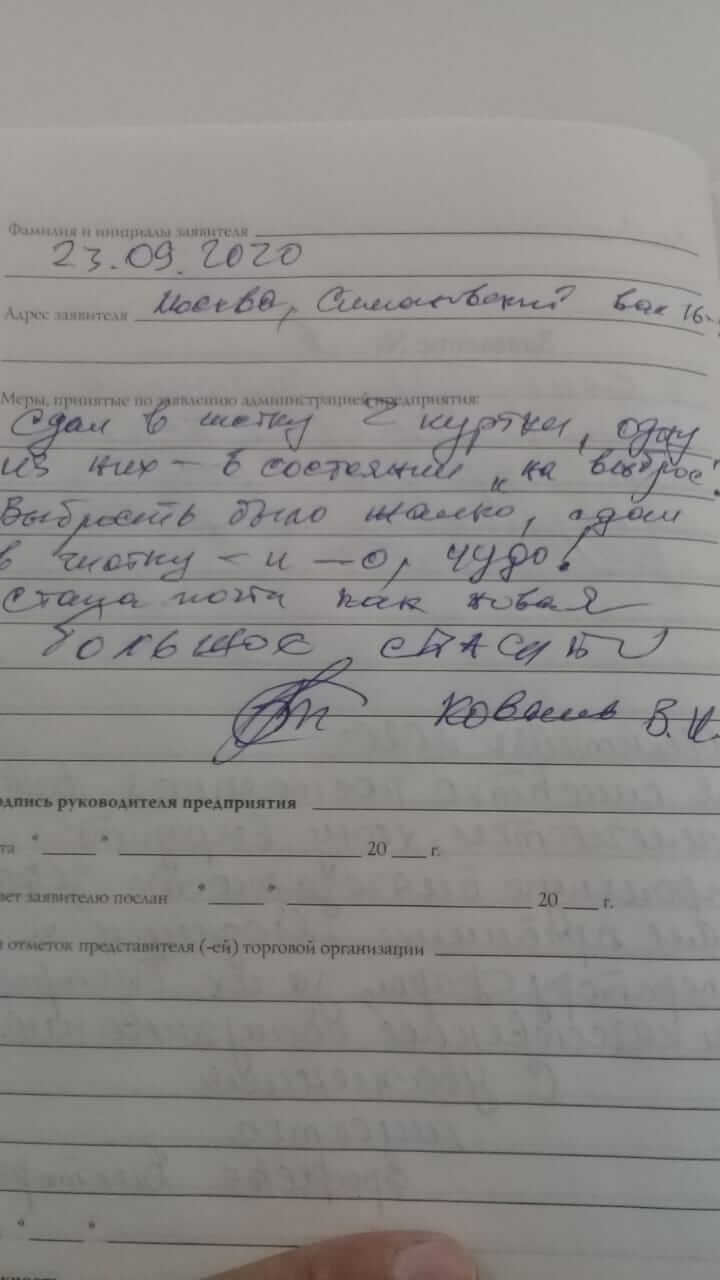 Фамилия и инициалы заявителя
23.09.2020
Адрес заявителя Москва, Симоновский вал 16-
Меры, принятые по заявлению администрацией предприятия:
Сдал в чистку 2 куртки, одну
из них – в состоянии „на выброс".
Выбросить было жалко, сдал
в чистку – и – о, чудо!
Стала почти как новая
БОЛЬШОЕ СПАСИБО
Ковалев В.И.
одпись руководителя предприятия
та " " 20 г.
вет заявителю послан " " 20 г.
я отметок представителя (-ей) торговой организации
" "